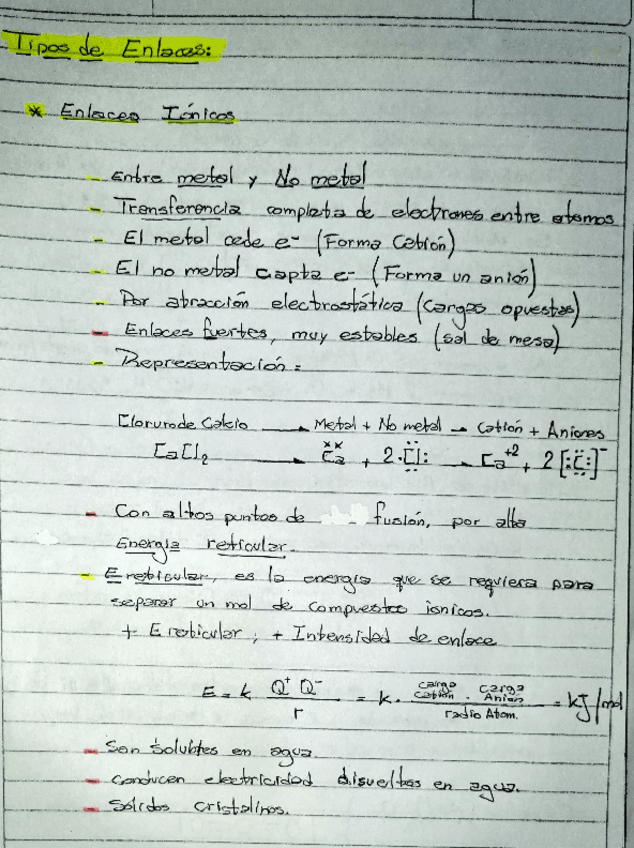 Tipos de Enlaces:
* Enlaces Iónicos
- Entre metal y No metal
- Transferencia completa de electrones entre atomos
- El metal cede e- (Forma Catión)
- El no metal capta e- (Forma un anión)
- Por atracción electrostática (Cargas opuestas)
- Enlaces fuertes, muy estables (sal de mesa)
- Representación:
Cloruro de Calcio → Metal + No metal → Catión + Aniones
CaCl₂ → ẍCa + 2·C̈l: → Ca⁺² + 2[:C̈l:]⁻
- Con altos puntos de fusión, por alta
Energía reticular.
- E reticular, es la energia que se requiere para
separar un mol de compuestos ionicos.
+ E reticular; + Intensidad de enlace
E = k Q⁺ Q⁻ / r = k · carga catión · carga Anión / radio Atom. = kJ/mol
- Son solubles en agua.
- conducen electricidad disueltos en agua.
- Sólidos cristalinos.